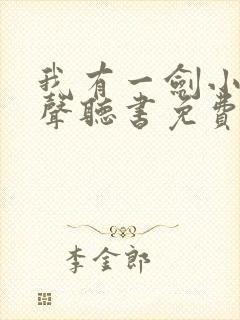 我有一劍小
聲聽書免費
李金郎